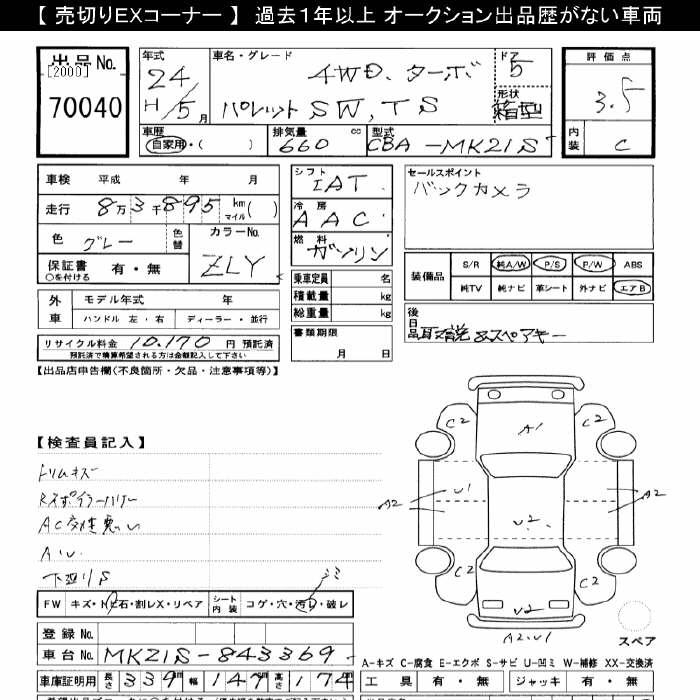 【 売切りEXコーナー 】 過去1年以上 オークション出品歴がない車両
出品No.
[2000]
70040
年式
24/
H/5月
車名・グレード
4WD、ターボ
パレットSW,TS
ドア
5
形状
箱型
車歴
自家用・( )
排気量 cc
660
型式
CBA-MK21S
評価点
3.5
内装
C
車検 平成 年 月
走行 8万3千895 km マイル( )
色 グレー
色替
カラーNo.
ZLY
保証書 有・無
○を付ける
外車
モデル年式 年
ハンドル 左・右 ディーラー・並行
リサイクル料金 10,170 円 預託済
預託済で積算希望される方は金額記入して下さい
シフト
IAT
冷房
AAC
燃料
ガソリン
乗車定員 名
積載量 kg
総重量 kg
書類期限
月 日
セールスポイント
バックカメラ
装備品
S/R 純A/W P/S P/W ABS
純TV 純ナビ 革シート 外ナビ エアB
後日品
取説&スペアキー
【出品店申告欄(不良箇所・欠品・注意事項等)】
【検査員記入】
トリムキズ
Rスポイラーハガリー
AC効き悪い
A、U、
下廻りS
シミ
FW キズ・飛石・割レX・リペア シート内装 コゲ・穴・汚レ・破レ
登録No.
車台No. MK21S-843369
車庫証明用 長さ 339 幅 147 高さ 174
C2 C2
A1
A2 U1 A2
U2
C2 C2
U2
A2、U1
スペア
A-キズ C-腐食 E-エクボ S-サビ U-凹ミ W-補修 XX-交換済
工具 有・無 ジャッキ 有・無